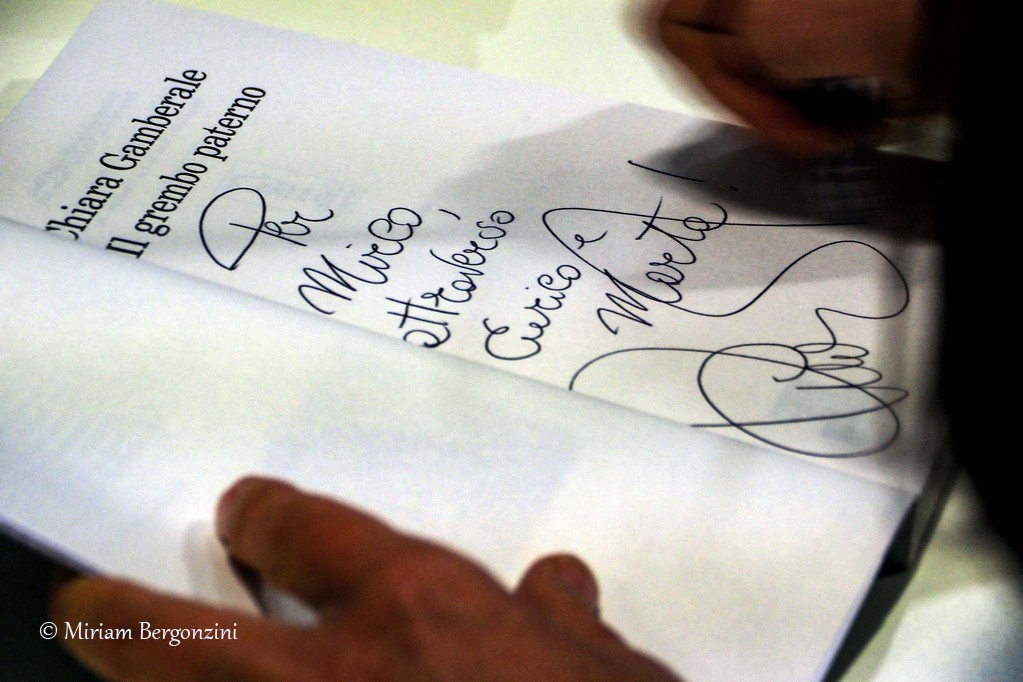 Chiara Gamberale
Il grembo paterno
Per
Mirco,
attraverso
Enrico e
Marta!
© Miriam Bergonzini